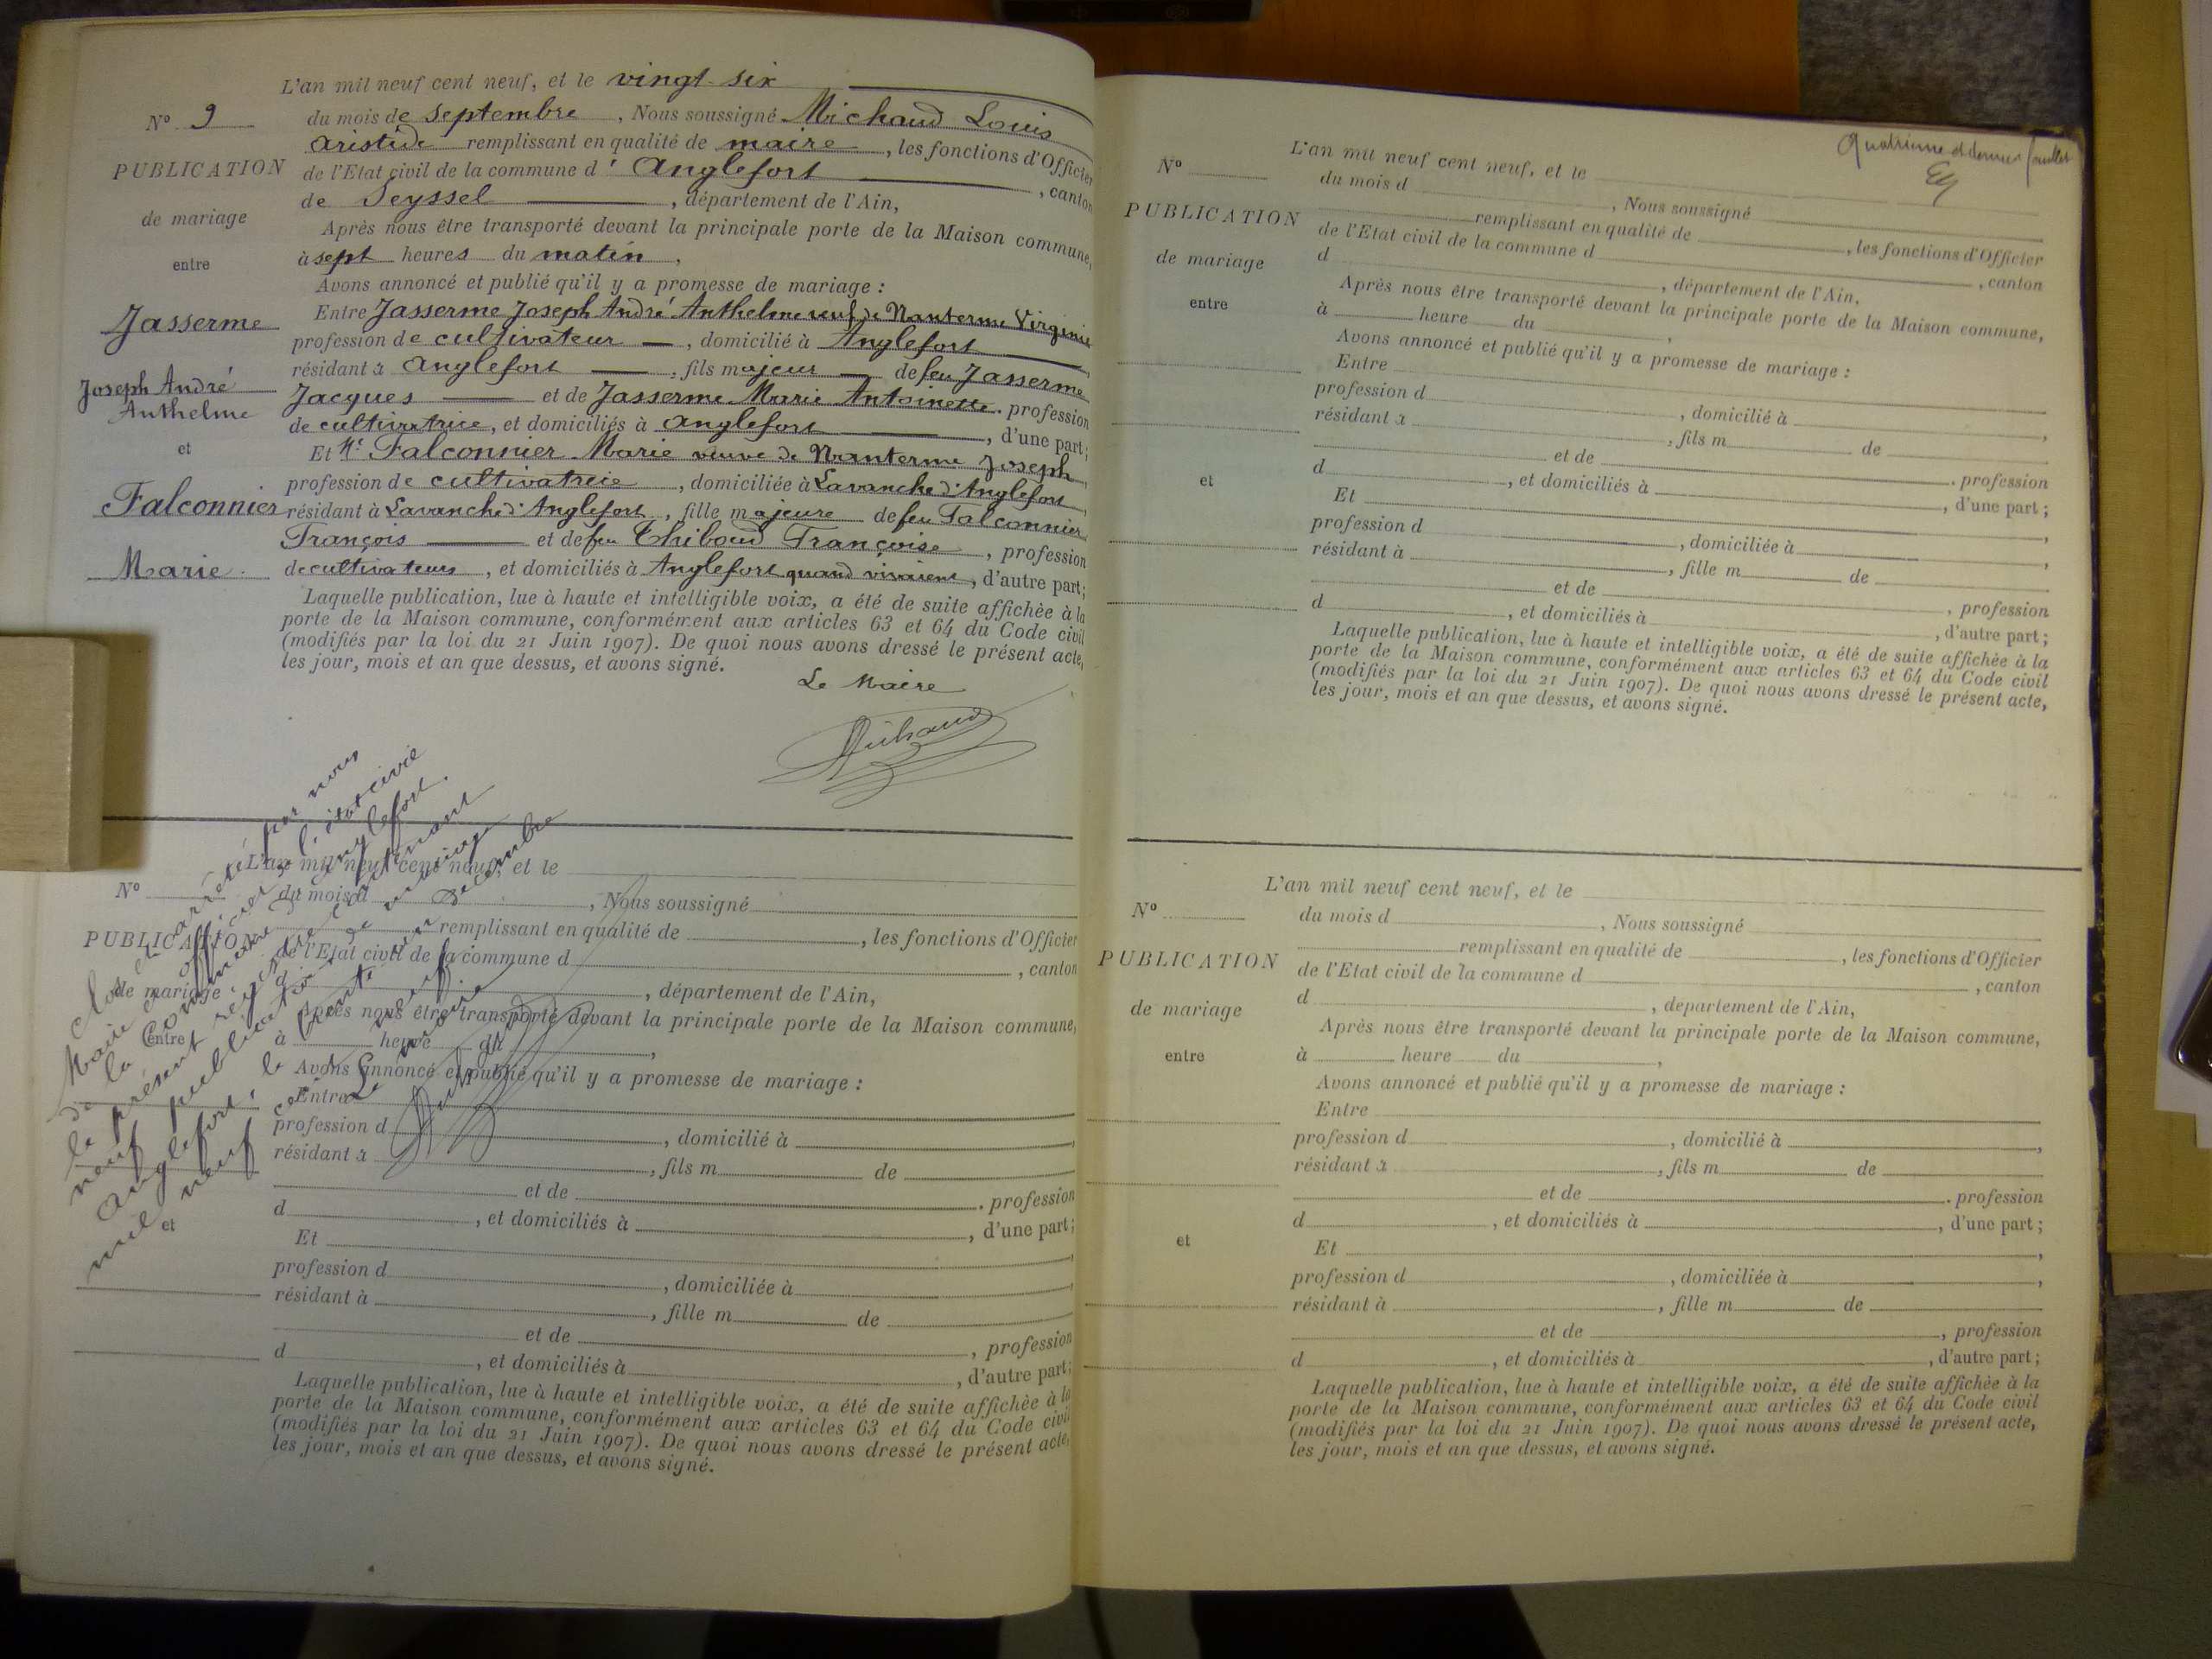 L'an mil neuf cent neuf, et le vingt-six
N° 9
du mois de septembre, Nous soussigné Michaud Louis
Aristide remplissant en qualité de maire, les fonctions d'Officier
PUBLICATION
de l'Etat civil de la commune d'Anglefort, canton
de Seyssel, département de l'Ain,
de mariage
Après nous être transporté devant la principale porte de la Maison commune,
entre
à sept heures du matin,
Avons annoncé et publié qu'il y a promesse de mariage :
Jasserme
Entre Jasserme Joseph André Anthelme veuf de Nanterme Virginie
profession de cultivateur, domicilié à Anglefort,
résidant à Anglefort, fils majeur de feu Jasserme
Joseph André
Anthelme
Jacques et de Jasserme Marie Antoinette. profession
de cultivatrice, et domiciliés à Anglefort, d'une part;
et
Et Me Falconnier Marie veuve de Nanterme Joseph
profession de cultivatrice, domiciliée à Lavanche d'Anglefort,
Falconnier
résidant à Lavanche d'Anglefort, fille majeure de feu Falconnier
François et de feu Thiboud Françoise, profession
Marie
de cultivateurs, et domiciliés à Anglefort quand vivaient, d'autre part;
Laquelle publication, lue à haute et intelligible voix, a été de suite affichèe à la
porte de la Maison commune, conformément aux articles 63 et 64 du Code civil
(modifiés par la loi du 21 Juin 1907). De quoi nous avons dressé le présent acte,
les jour, mois et an que dessus, et avons signé.
Le Maire
Michaud
Clos et arrêté par nous
Maire et officier de l'état civil
de la commune d'Anglefort.
le présent registre contenant
neuf publications de mariage
Anglefort, le trente un décembre
mil neuf cent neuf
Le Maire
Michaud
L'an mil neuf cent neuf, et le
N°
du mois d, Nous soussigné
remplissant en qualité de, les fonctions d'Officier
PUBLICATION
de l'Etat civil de la commune d, canton
de mariage
d, département de l'Ain,
Après nous être transporté devant la principale porte de la Maison commune,
entre
à heure du,
Avons annoncé et publié qu'il y a promesse de mariage :
Entre
profession d, domicilié à,
résidant à, fils m de
et de. profession
d, et domiciliés à, d'une part;
et
Et,
profession d, domiciliée à,
résidant à, fille m de
et de, profession
d, et domiciliés à, d'autre part;
Laquelle publication, lue à haute et intelligible voix, a été de suite affichèe à la
porte de la Maison commune, conformément aux articles 63 et 64 du Code civil
(modifiés par la loi du 21 Juin 1907). De quoi nous avons dressé le présent acte,
les jour, mois et an que dessus, et avons signé.
Quatrième et dernier feuillet
L'an mil neuf cent neuf, et le
N°
du mois d, Nous soussigné
remplissant en qualité de, les fonctions d'Officier
PUBLICATION
de l'Etat civil de la commune d, canton
d, département de l'Ain,
de mariage
Après nous être transporté devant la principale porte de la Maison commune,
entre
à heure du,
Avons annoncé et publié qu'il y a promesse de mariage :
Entre
profession d, domicilié à,
résidant à, fils m de
et de. profession
d, et domiciliés à, d'une part;
et
Et,
profession d, domiciliée à,
résidant à, fille m de
et de, profession
d, et domiciliés à, d'autre part;
Laquelle publication, lue à haute et intelligible voix, a été de suite affichèe à la
porte de la Maison commune, conformément aux articles 63 et 64 du Code civil
(modifiés par la loi du 21 Juin 1907). De quoi nous avons dressé le présent acte,
les jour, mois et an que dessus, et avons signé.
L'an mil neuf cent neuf, et le
N°
du mois d, Nous soussigné
remplissant en qualité de, les fonctions d'Officier
PUBLICATION
de l'Etat civil de la commune d, canton
d, département de l'Ain,
de mariage
Après nous être transporté devant la principale porte de la Maison commune,
entre
à heure du,
Avons annoncé et publié qu'il y a promesse de mariage :
Entre
profession d, domicilié à,
résidant à, fils m de
et de. profession
d, et domiciliés à, d'une part;
et
Et,
profession d, domiciliée à,
résidant à, fille m de
et de, profession
d, et domiciliés à, d'autre part;
Laquelle publication, lue à haute et intelligible voix, a été de suite affichèe à la
porte de la Maison commune, conformément aux articles 63 et 64 du Code civil
(modifiés par la loi du 21 Juin 1907). De quoi nous avons dressé le présent acte,
les jour, mois et an que dessus, et avons signé.